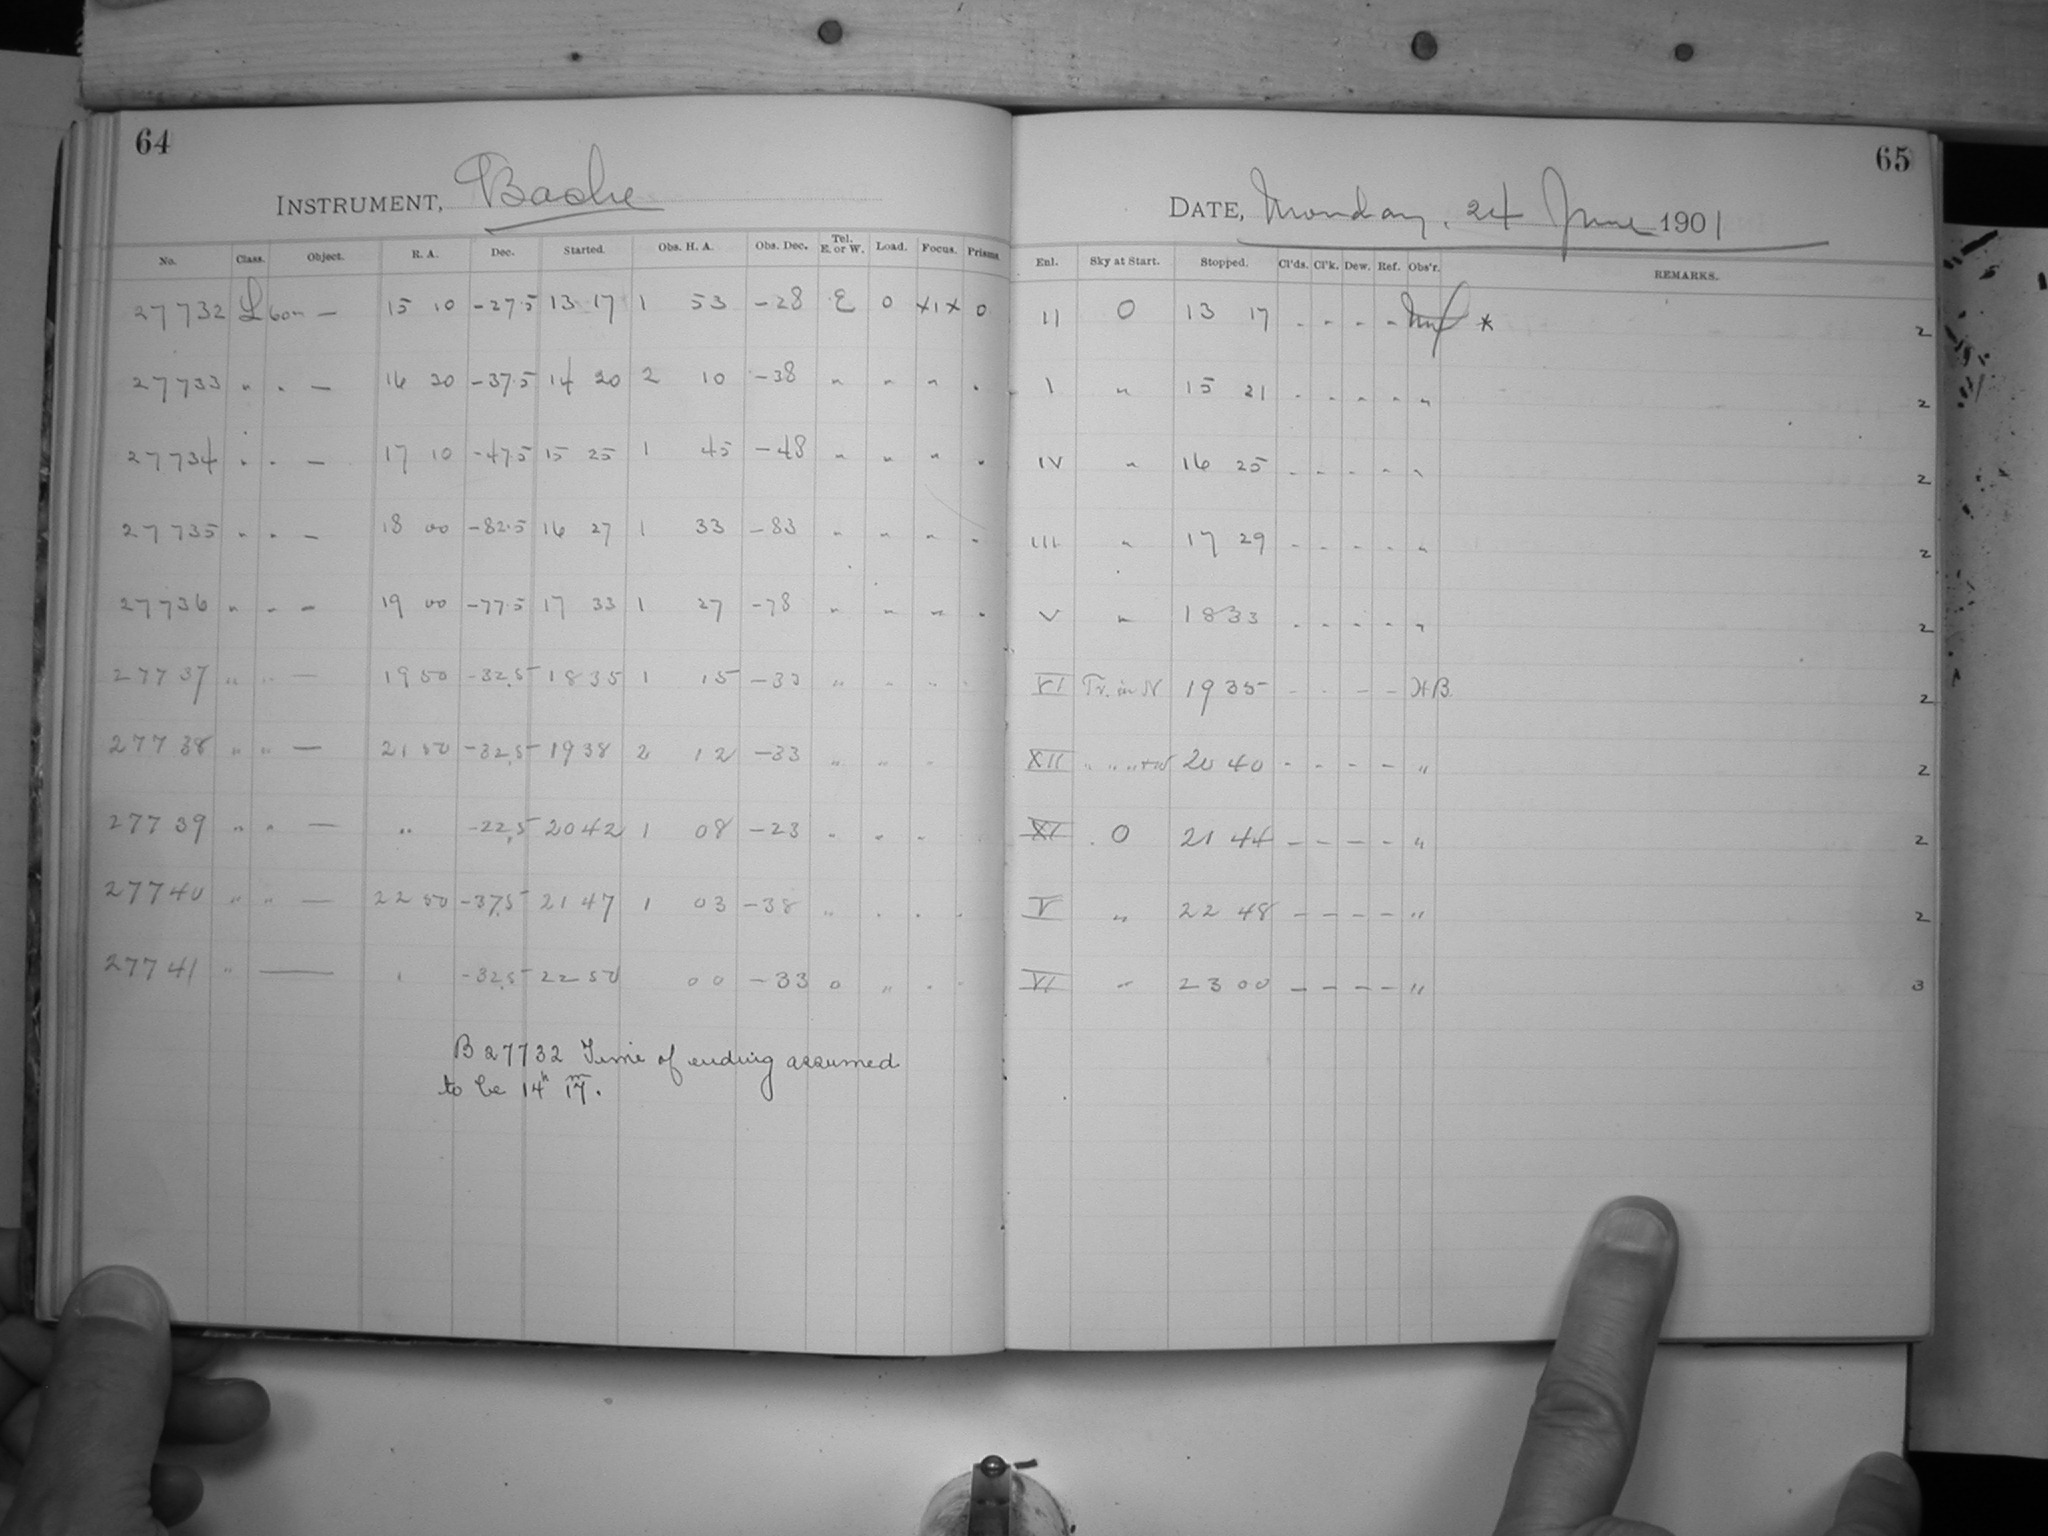 64
INSTRUMENT, Bache
No. Class. Object. R. A. Dec. Started. Obs. H. A. Obs. Dec. Tel. E. or W. Load. Focus. Prisms.
27732 L 60m — 15 10 -27.5 13 17 1 53 -28 E 0 x1x 0
27733 " " — 16 30 -37.5 14 20 2 10 -38 " " " "
27734 " " — 17 10 -47.5 15 25 1 45 -48 " " " "
27735 " " — 18 00 -82.5 16 27 1 33 -83 " " " "
27736 " " — 19 00 -77.5 17 33 1 27 -78 " " " "
27737 " " — 19 50 -32.5 18 35 1 15 -33 " " " "
27738 " " — 21 50 -32.5 19 38 2 12 -33 " " "
27739 " " — " -22.5 20 42 1 08 -23 " " "
27740 " " — 22 50 -37.5 21 47 1 03 -38 " " " "
27741 " — " -32.5 22 50 00 -33 0 " " "
B 27732 Time of ending assumed
to be 14h 17m.
65
DATE, Monday, 24 June 1901
Enl. Sky at Start. Stopped. Cl'ds. Cl'k. Dew. Ref. Obs'r. REMARKS.
II 0 13 17 - - - - * 2
I " 15 21 - - - - " 2
IV " 16 25 - - - - " 2
III " 17 29 - - - - " 2
V " 18 33 - - - - " 2
VI Tr. in N 19 35 - - - - H.B. 2
XII " " " + W 20 40 - - - - " 2
XI 0 21 44 - - - - " 2
V " 22 48 - - - - " 2
VI " 23 00 - - - - " 3